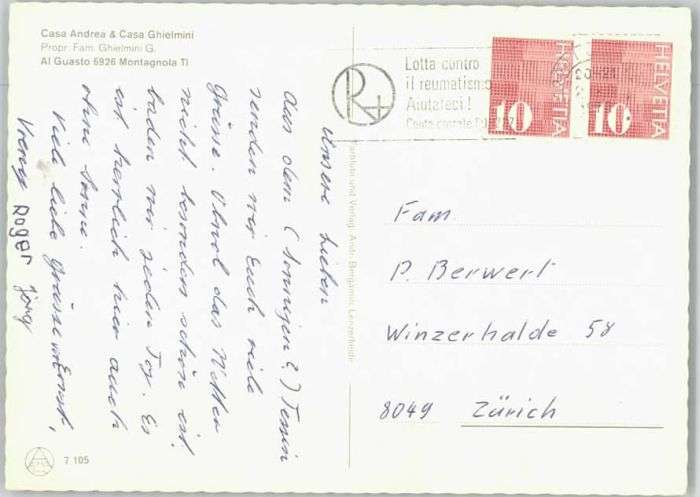 Casa Andrea & Casa Ghielmini
Propr. Fam. Ghielmini G.
Al Guasto 6926 Montagnola Ti
Lotta contro
il reumatismo
Aiutateci!
Conto
10
HELVETIA
10
HELVETIA
Unsere Lieben
Aus dem (sonnigen?) Tessin
senden wir Euch viele
Grüsse. Obwol das Wetter
nicht besonders schön ist
baden wir jeden Tag. Es
ist herrlich hier auch
ohne Sonne.
Viele liebe Grüsse von Ernst,
Vreny Roger Jörg
Fam.
P. Berwert
Winzerhalde 58
8049 Zürich
7 105